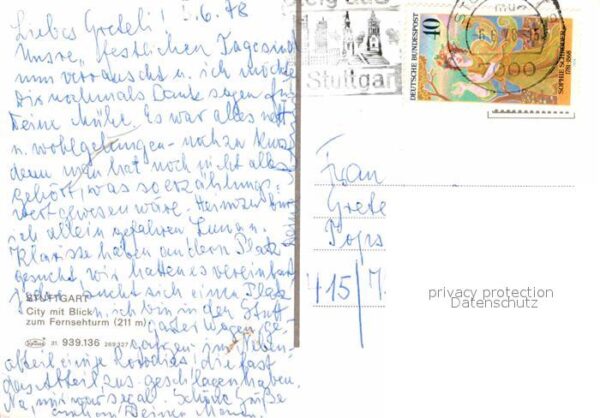 Liebes Greteli! 5.6.78
Unsre "festlichen Tage sind
nun verrauscht u. ich möchte
Dir nochmals Danke sagen für
Deine Mühe. Es war alles nett
u. wohlgelungen - noch zu kurz
denn man hat noch nicht alles
gehört, was so erzählungs-
wert gewesen wäre. Herwärts bin
ich allein gefahren
Klarisse haben andern Platz
gesucht, wir hatten es vereinbart
jeder sucht sich einen Platz
u. ich bin in den Stutt
garter Wagen ge-
gangen, im Neben-
abteil eine die fast
das Abteil zus. geschlagen haben.
Na, mir war's egal. Schöne Grüße
Deine
STUTTGART
City mit Blick
zum Fernsehturm (211 m)
31 939.136
Stuttgart
7000
40
DEUTSCHE BUNDESPOST
SOPHIE SCHRÖDER
1781-1868
Frau
Grete
Pops
415/
privacy protection
Datenschutz